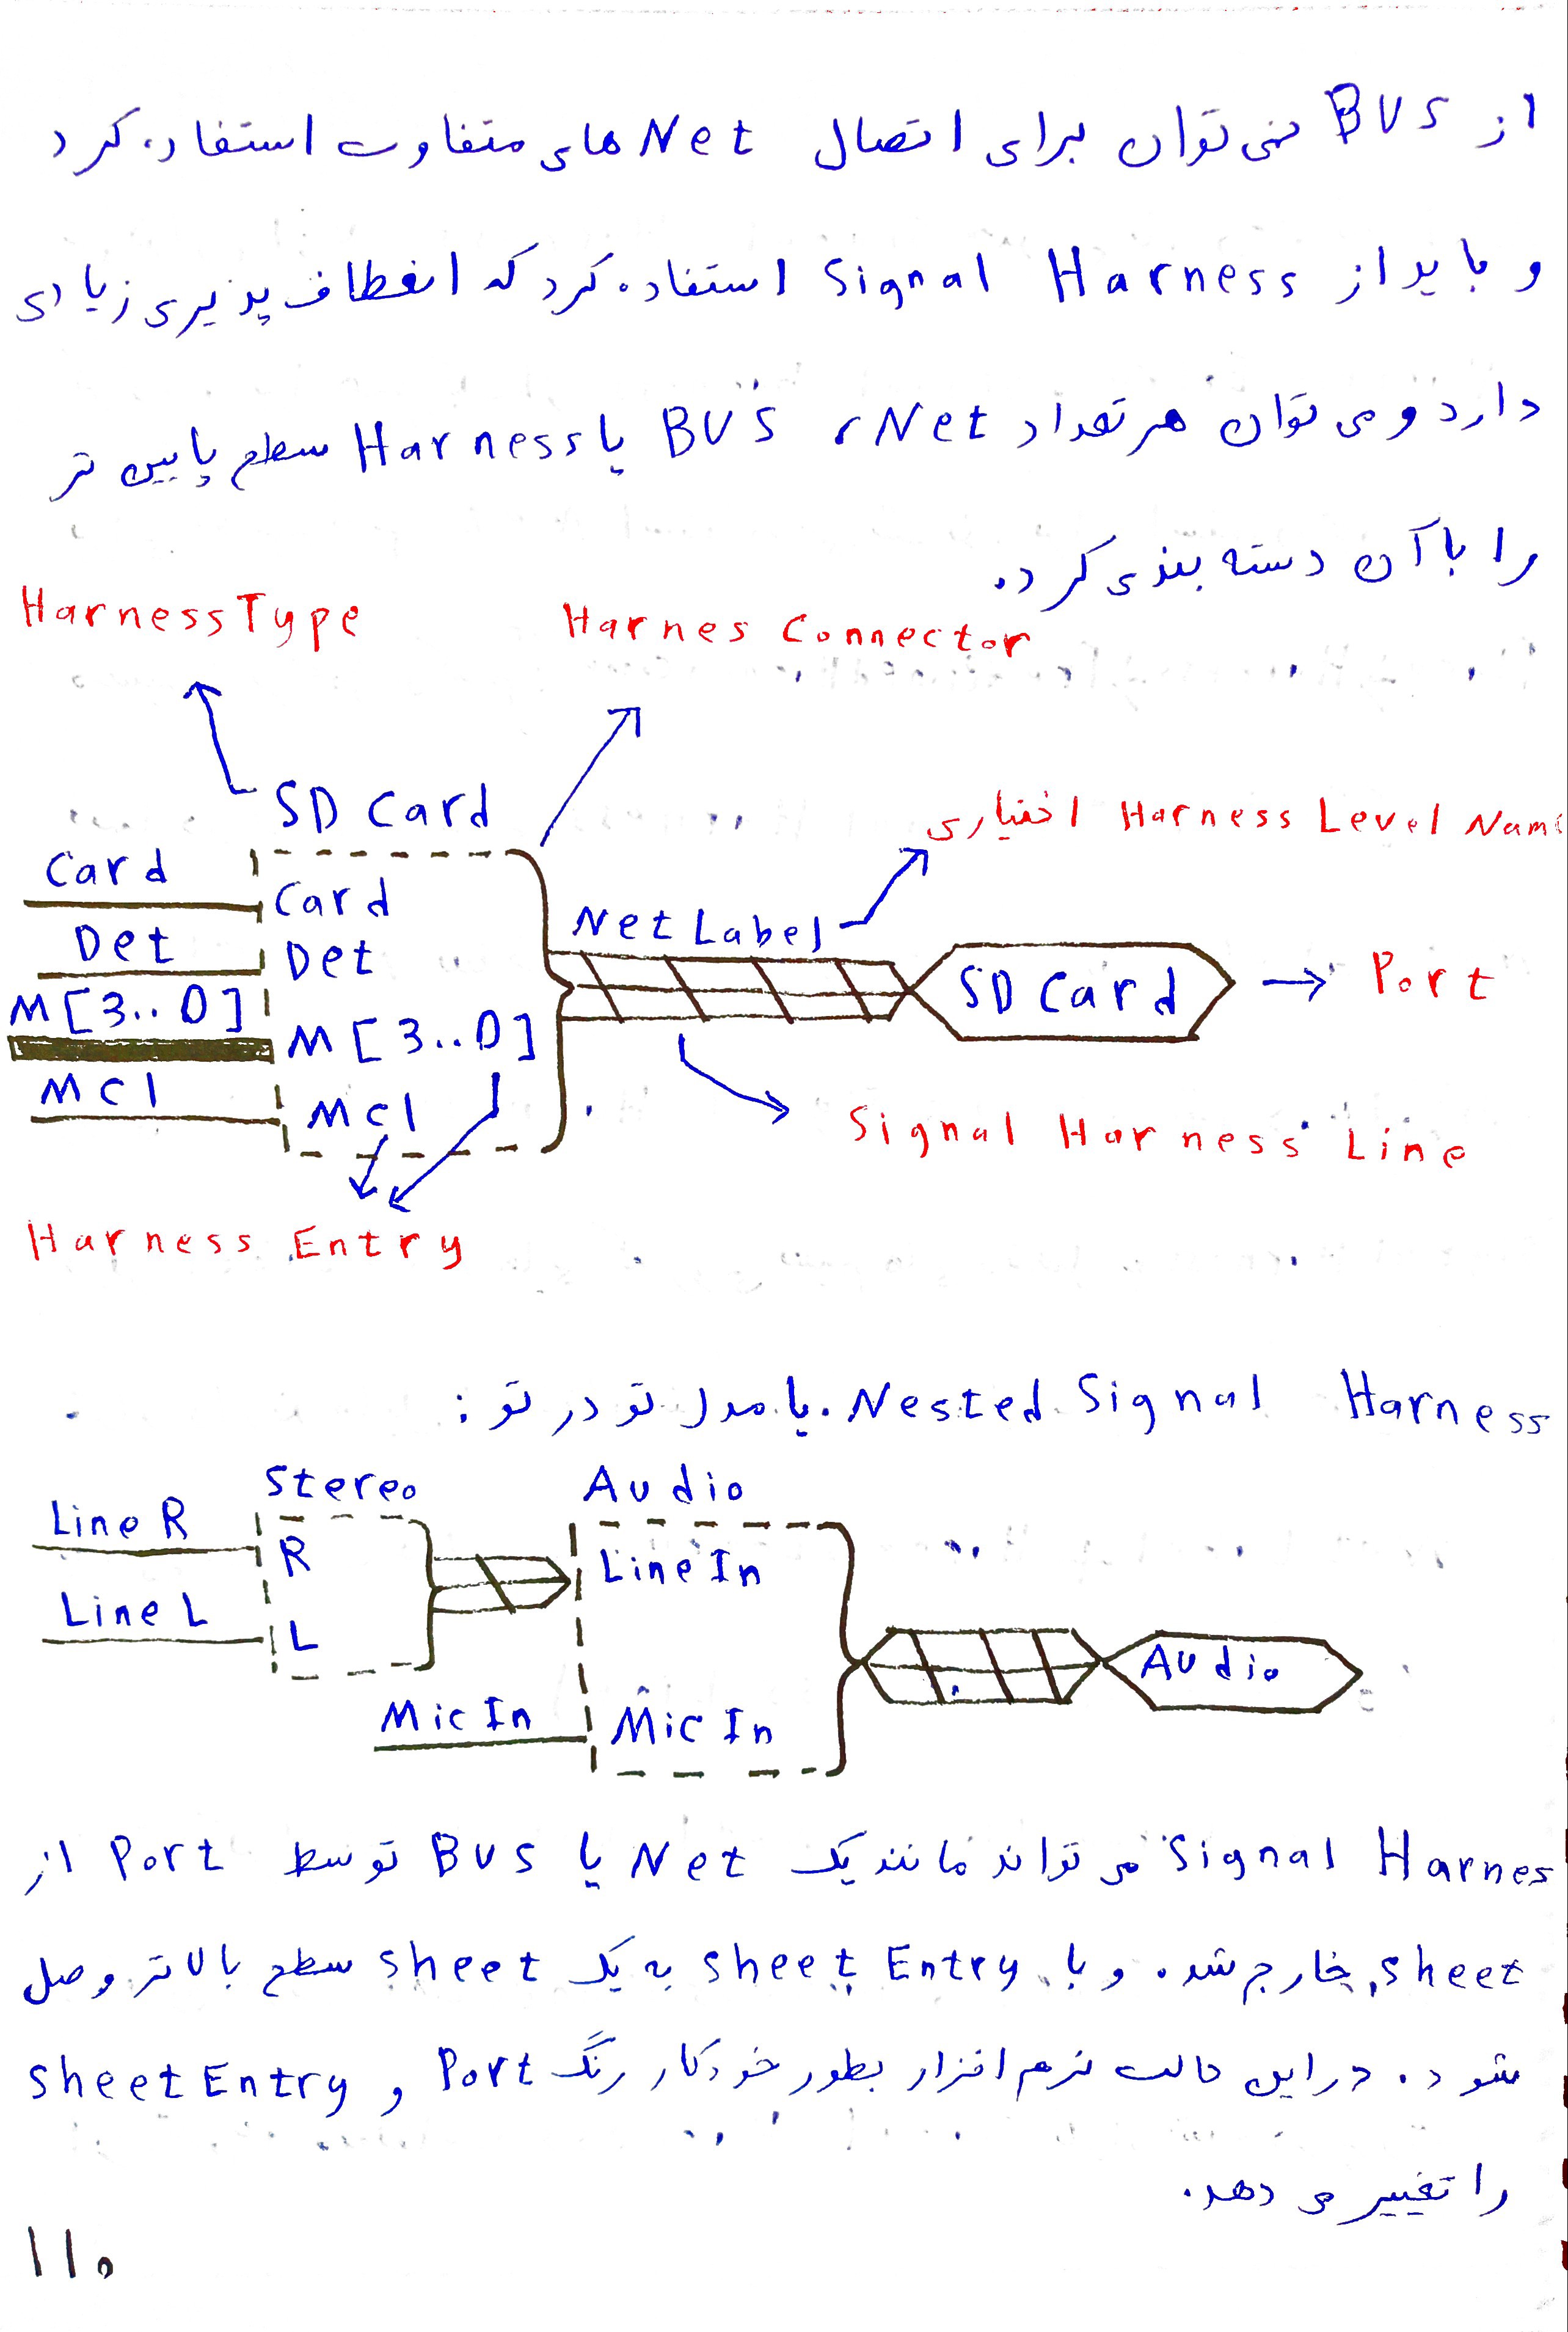 از BUS نمی توان برای اتصال Net های متفاوت استفاده کرد
و باید از Signal Harness استفاده کرد که انعطاف پذیری زیادی
دارد و می توان هر تعداد Net، BUS یا Harness سطح پایین تر
را با آن دسته بندی کرد.
Harness Type
Harnes Connector
SD Card
اختیاری Harness Level Name
Card
Card
Net Label
Det
Det
SD Card
Port
M[3..0]
M[3..0]
MCl
MCl
Signal Harness Line
Harness Entry
Nested Signal Harness یا مدل تو در تو :
Stereo
Audio
Line R
R
Line In
Line L
L
Audio
Mic In
Mic In
Signal Harnes می تواند مانند یک Net یا BUS توسط Port از
sheet خارج شده و با sheet Entry به یک sheet سطح بالاتر وصل
شود. در این حالت نرم افزار بطور خودکار رنگ Port و sheet Entry
را تغییر می دهد.
۱۱۰